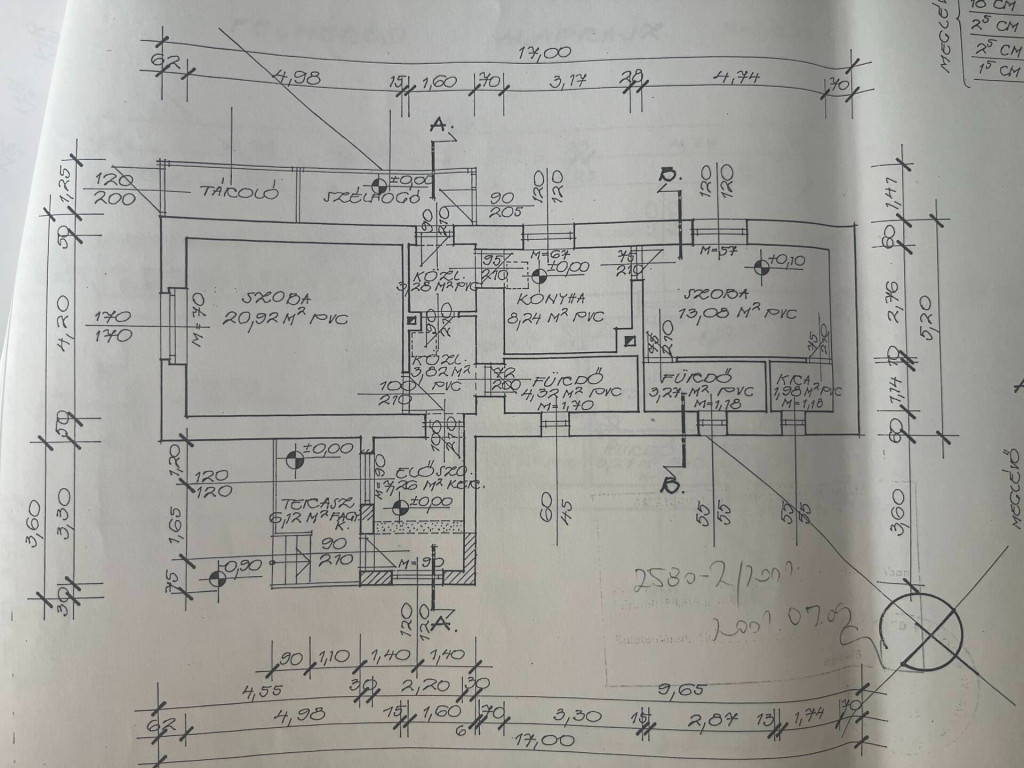 10 CM
2⁵ CM
2⁵ CM
1⁵ CM
17,00
62
4,98
15
1,60
70
3,17
28
4,74
70
A.
B.
1,25
120
200
TÁROLÓ
SZÉLFOGÓ
±0,00
90
205
120
120
120
120
1,41
50
90
210
95
210
M=67
±0,00
75
210
M=57
±0,10
60
KÖZL.
3,28 M² PVC
SZOBA
20,92 M² PVC
KONYHA
8,24 M² PVC
SZOBA
13,08 M² PVC
4,20
170
170
M=70
2,76
5,20
90
210
75
210
75
210
KÖZL.
3,82 M²
PVC
100
210
FÜRDŐ
4,32 M² PVC
M=1,70
FÜRDŐ
3,27 M² PVC
M=1,18
1,98 M² PVC
M=1,18
10
1,14
60
90
210
B.
±0,00
1,20
120
120
90
ELŐSZO.
7,26 M² KER.
±0,00
TERASZ
60
45
55
55
55
55
3,60
3,30
1,65
3,60
90
210
M=90
-0,90
75
30
120
120
A.
2580-2/2011.
2011 07.02
90
1,10
1,40
1,40
4,55
30
2,20
30
9,65
62
4,98
15
1,60
6
70
3,30
15
2,87
13
1,74
70
17,00